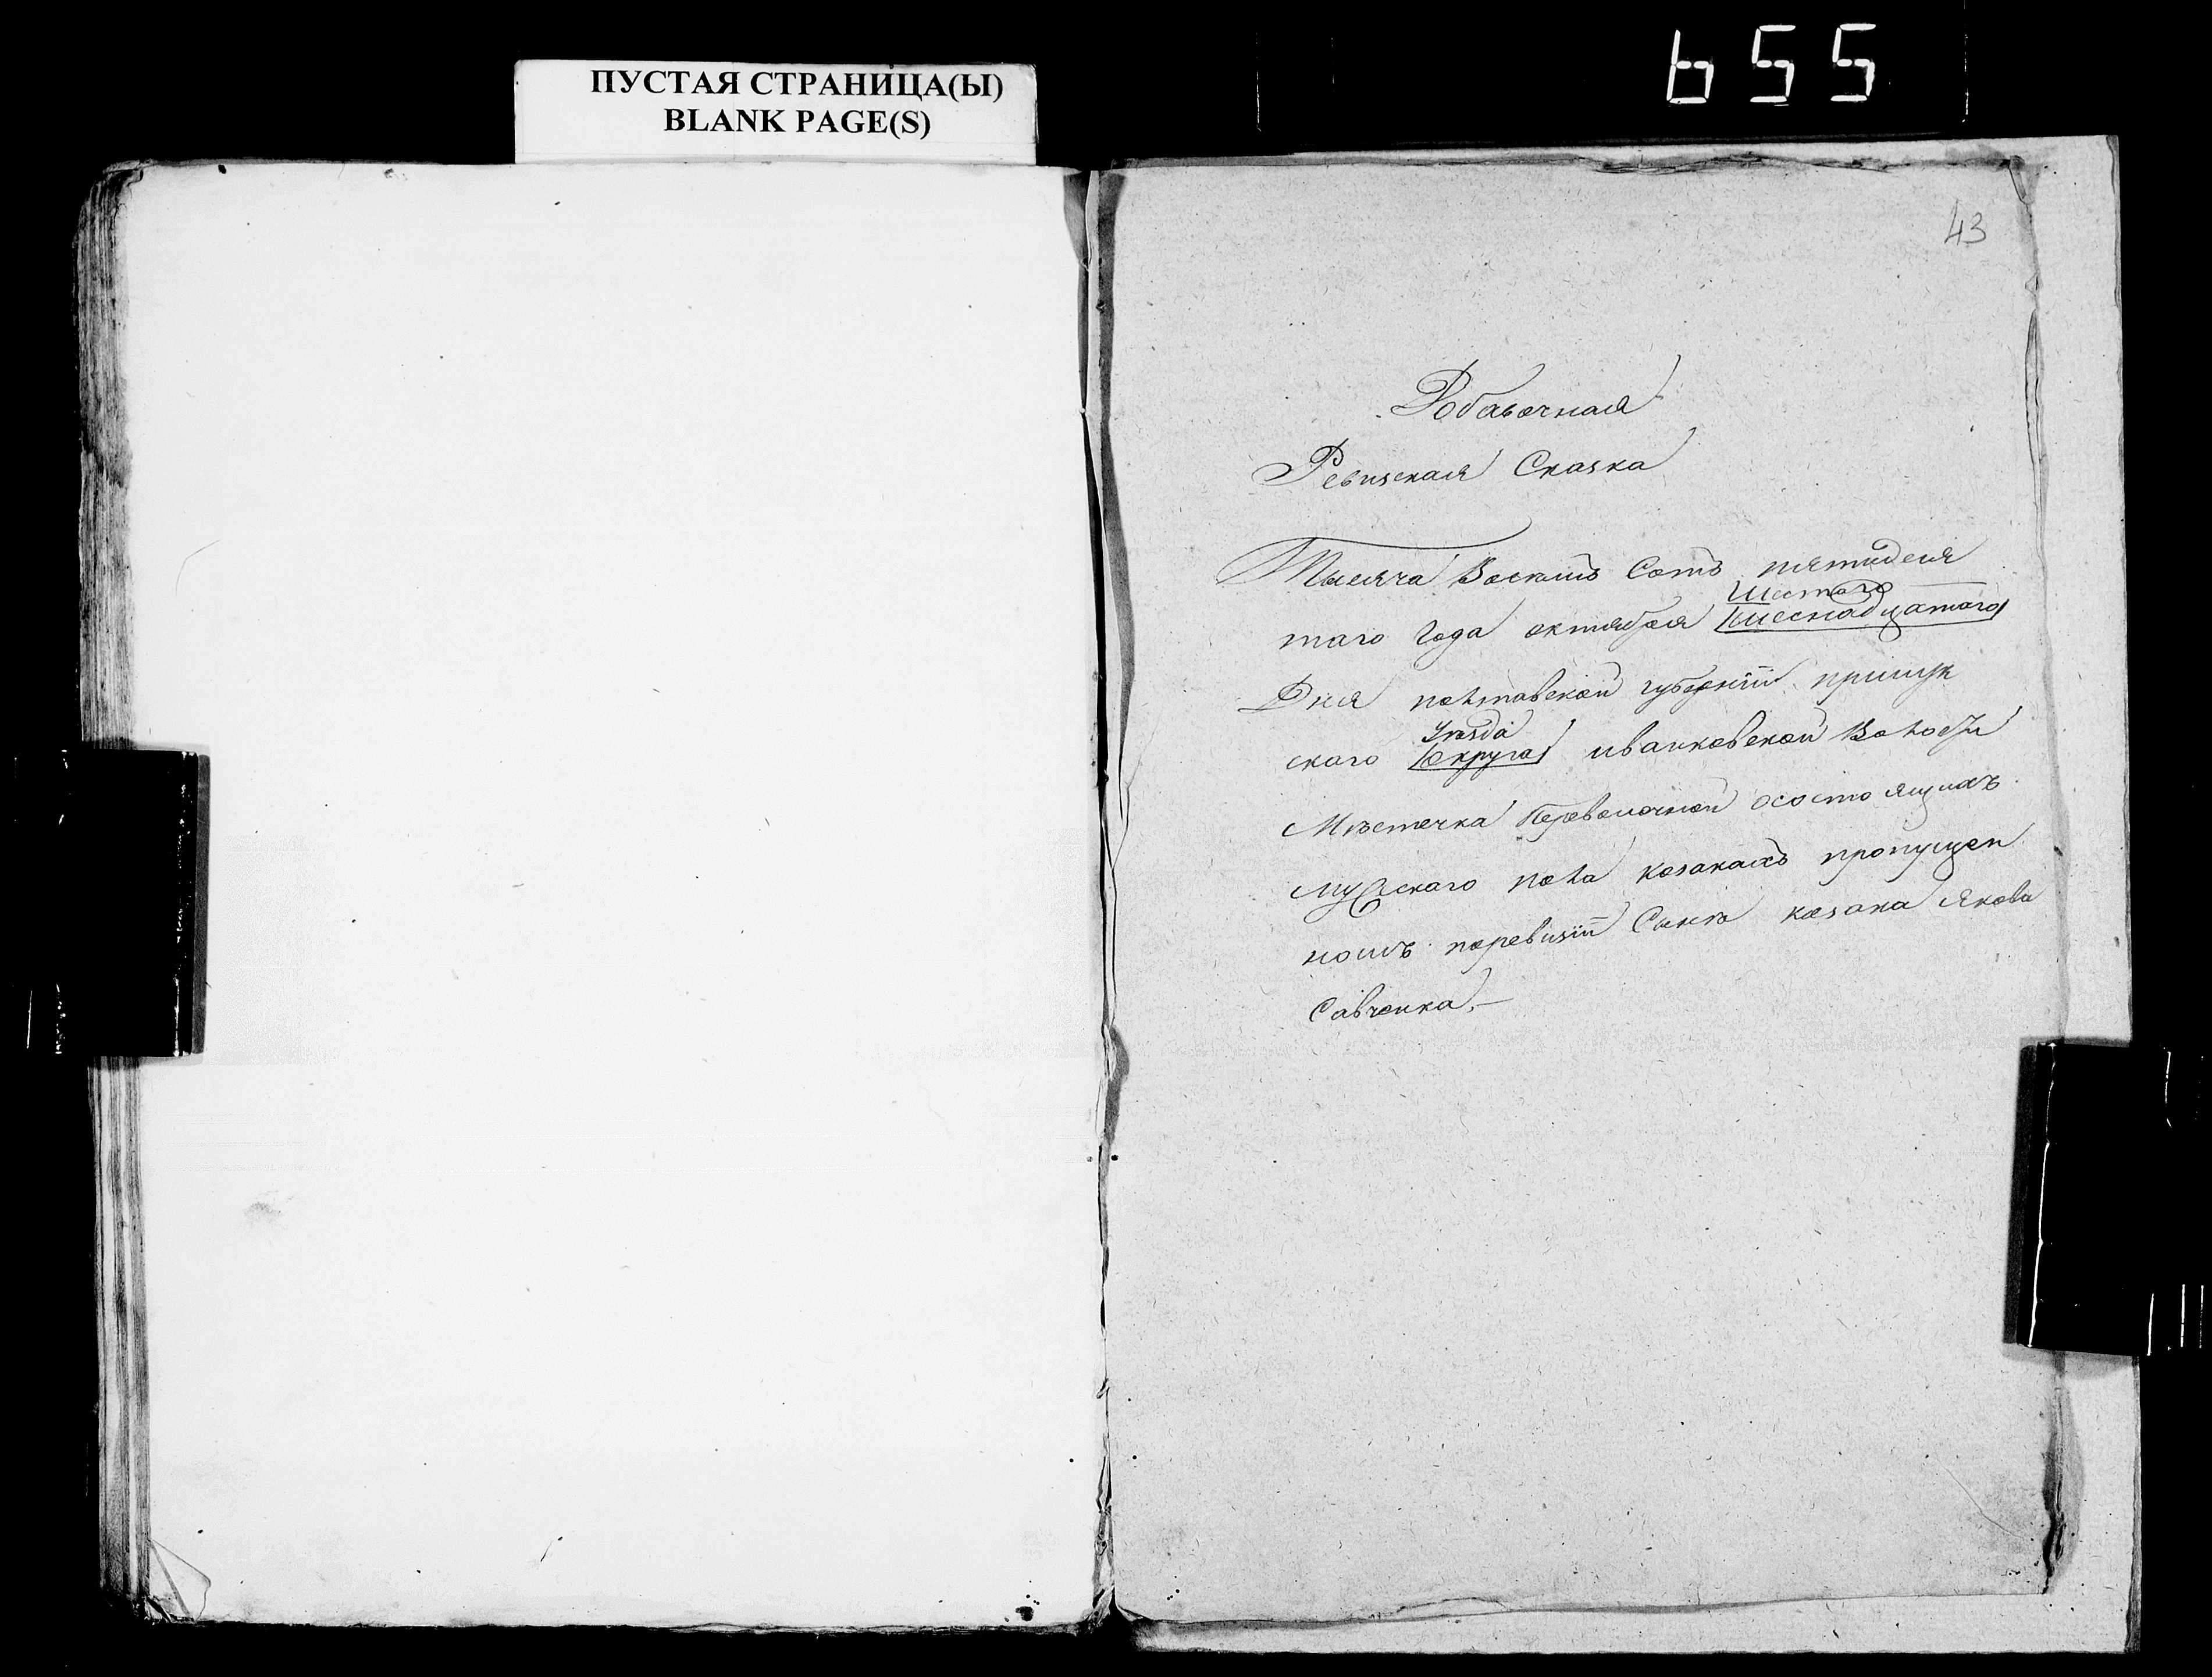 ПУСТАЯ СТРАНИЦА(Ы)
BLANK PAGE(S)
655
43
Добавочная
Ревизская Сказка
Тысяча Восемь Сотъ пятидеся
шестаго
таго Года октября шеснадцатаго
Дня полтавской губерніи прилук
Уѣзда
скаго Округа иванковской Волости
Мѣстечка Переволочной осостоящихъ
мужскаго пола козакахъ пропущен
номъ поревизіи Сынѣ козака Якова
Савченка.—